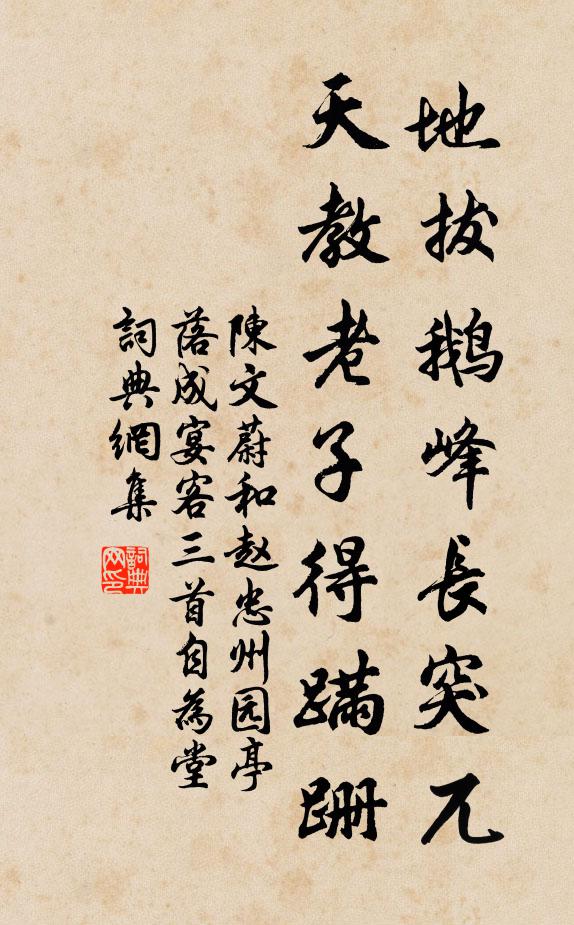 地拔鹅峰長突兀
天教老子得蹒跚
陳文蔚和赵忠州园亭
落成宴客三首自為堂
詞典網集
詞典
网印